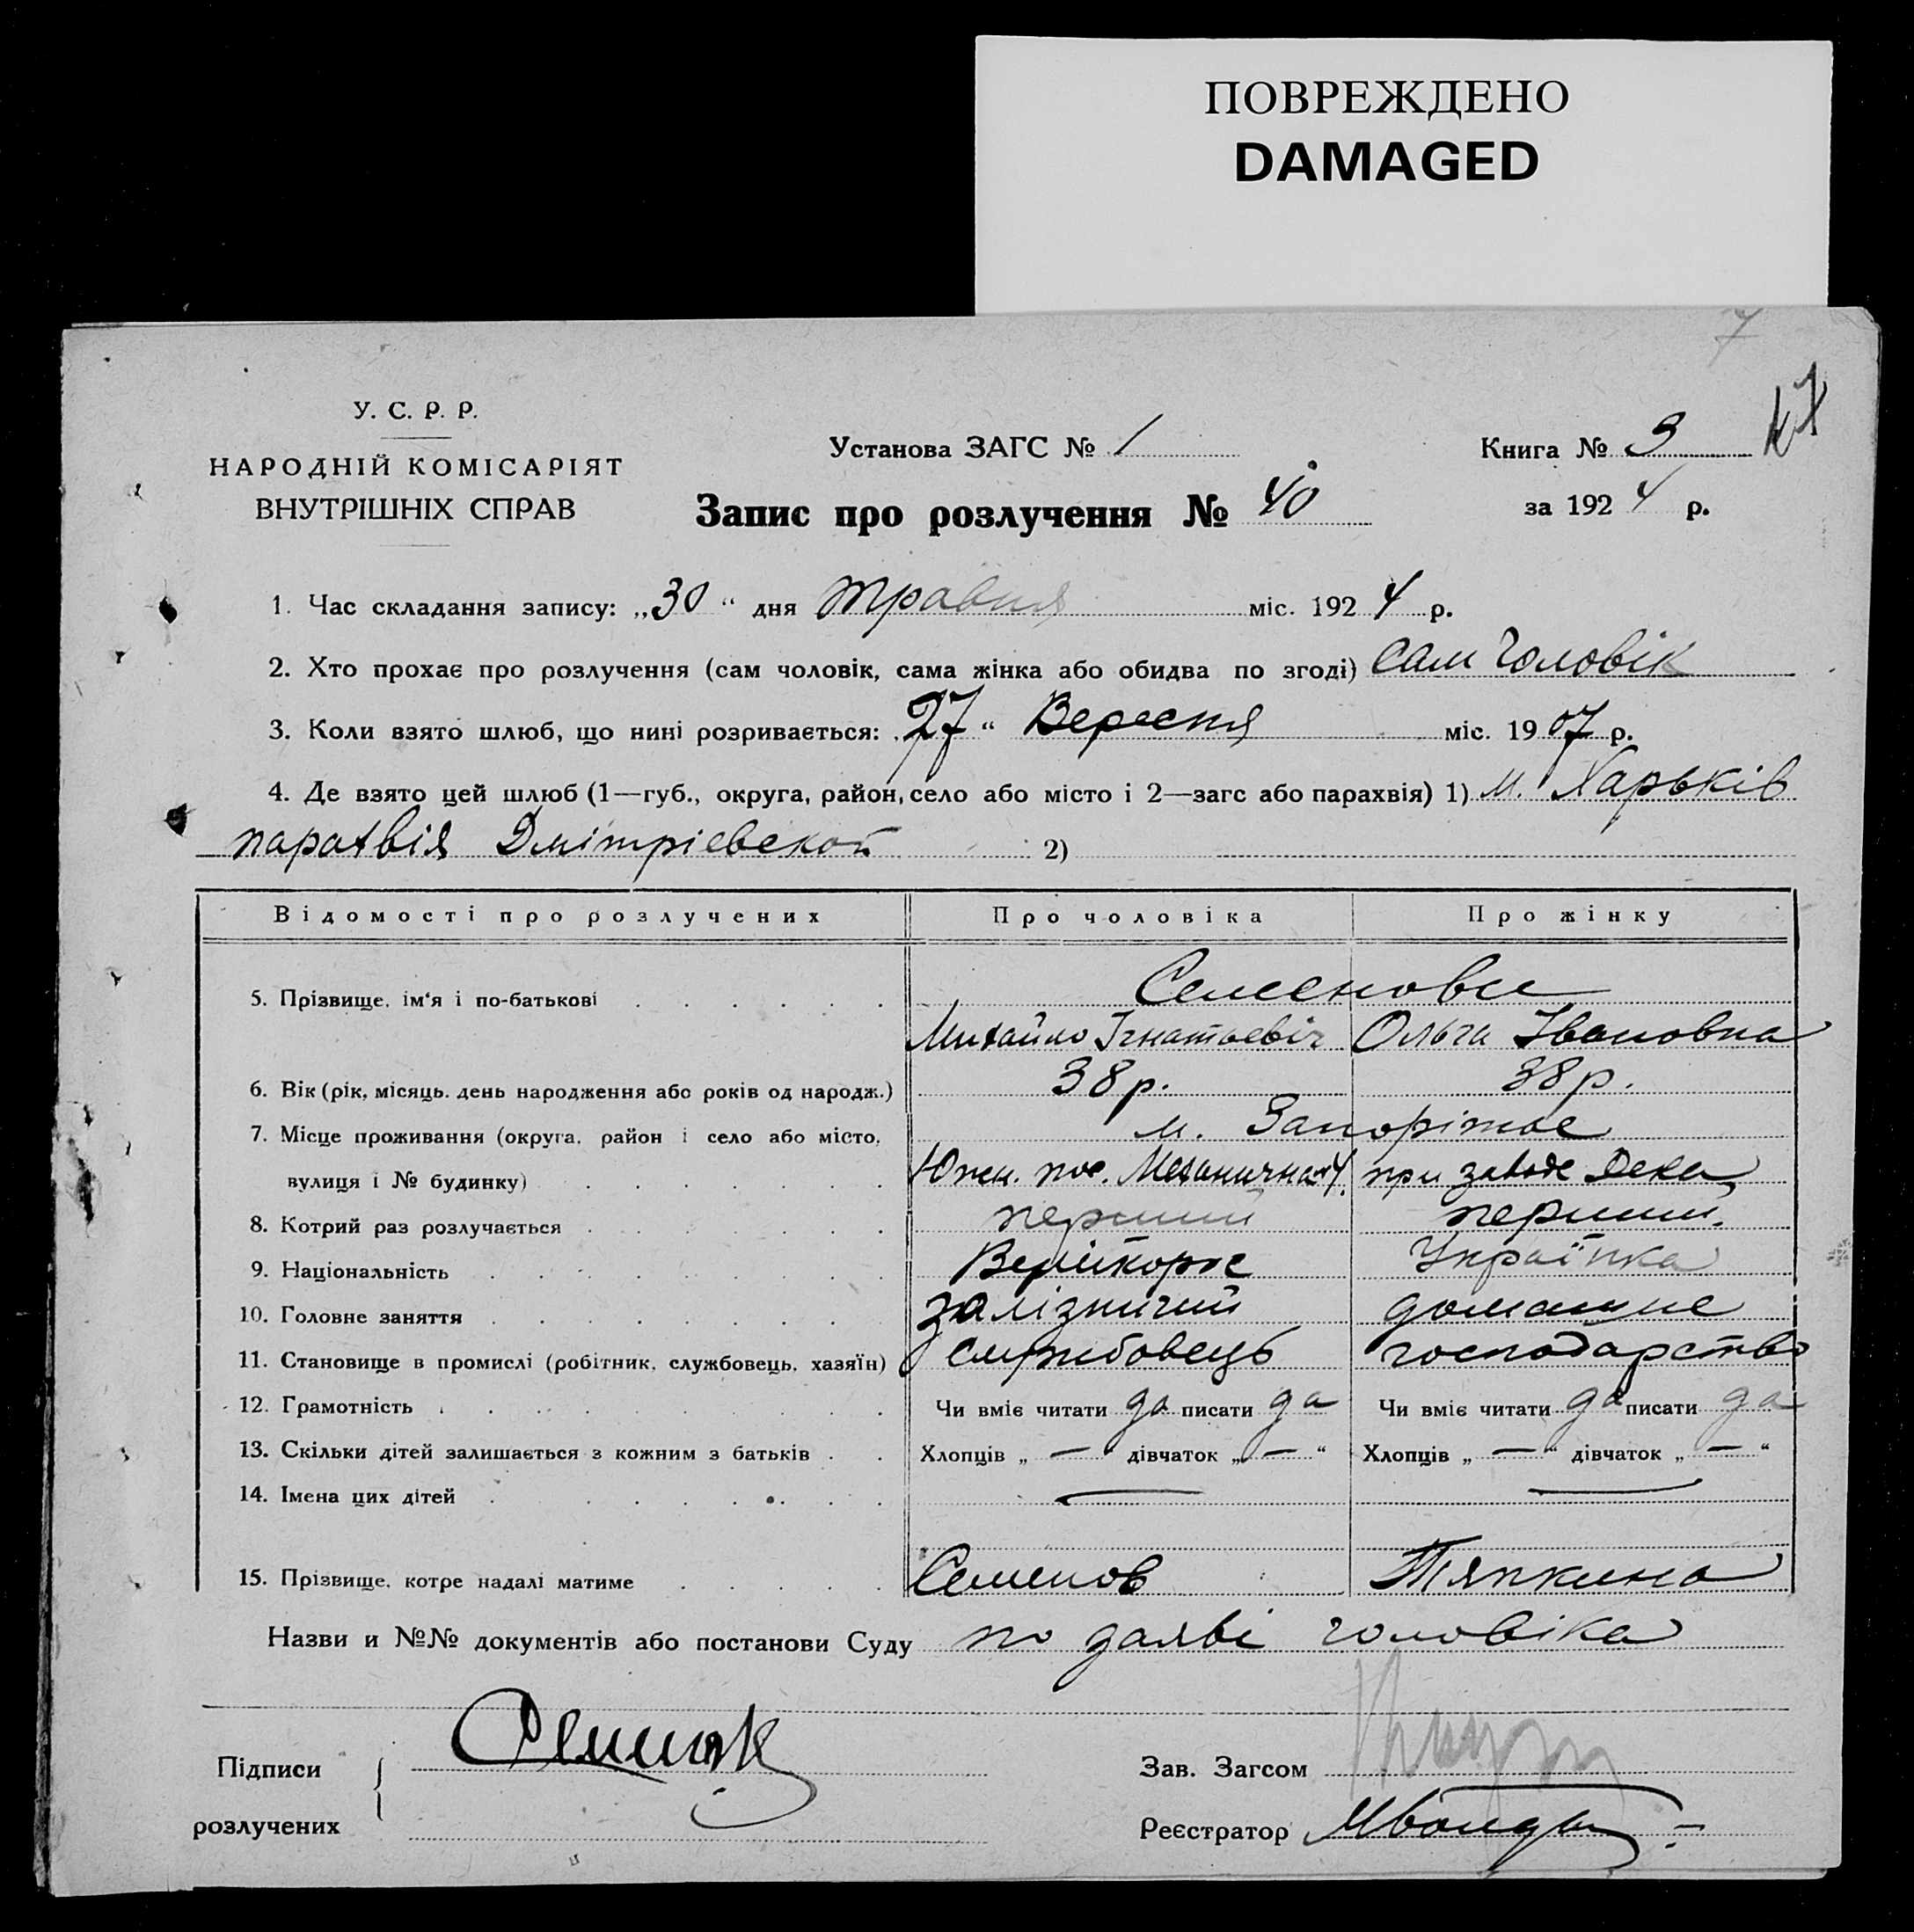 ПОВРЕЖДЕНО
DAMAGED
7
У. С. Р. Р.
НАРОДНІЙ КОМІСАРІЯТ
ВНУТРІШНІХ СПРАВ
Установа ЗАГС № 1
Книга № 3
Запис про розлучення № 40
за 1924 р.
1. Час складання запису: „30“ дня травня міс. 1924 р.
2. Хто прохає про розлучення (сам чоловік, сама жінка або обидва по згоді) сам чоловік
3. Коли взято шлюб, що нині розривається: „27“ Вересня міс. 1907 р.
4. Де взято цей шлюб (1—губ., округа, район, село або місто і 2—загс або парахвія) 1) м. Харьків
парахвія Дмітріевской 2)
Відомості про розлучених Про чоловіка Про жінку
5. Прізвище, ім'я і по-батькові Семеновы
Михайло Ігнатьевіч Ольга Івановна
6. Вік (рік, місяць, день народження або років од народж.) 38 р. 38 р.
7. Місце проживання (округа, район і село або місто, м. Запоріжье
вулиця і № будинку) Южн. пос. Механична 4. при заводе Дека
8. Котрий раз розлучається перший перший.
9. Національність Велікорос Українка
10. Головне заняття залізничий домашне
11. Становище в промислі (робітник, службовець, хазяїн) службовець господарство
12. Грамотність Чи вміє читати да писати да Чи вміє читати да писати да
13. Скільки дітей залишається з кожним з батьків Хлопців „ — “ дівчаток „ — “ Хлопців „ — “ дівчаток „ — “
14. Імена цих дітей — —
15. Прізвище, котре надалі матиме Семенов Тяпкина
Назви и №№ документів або постанови Суду по заяві чоловіка
Підписи
розлучених
Зав. Загсом
Реєстратор